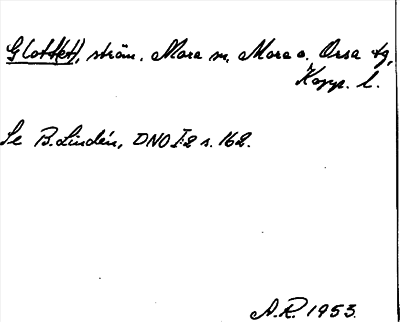 Glott(et), ström. Mora sn. Mora o. Orsa tg,
Kopp. l.
Se B. Lindén, DNO I:2 s. 162.
A.R. 1953.